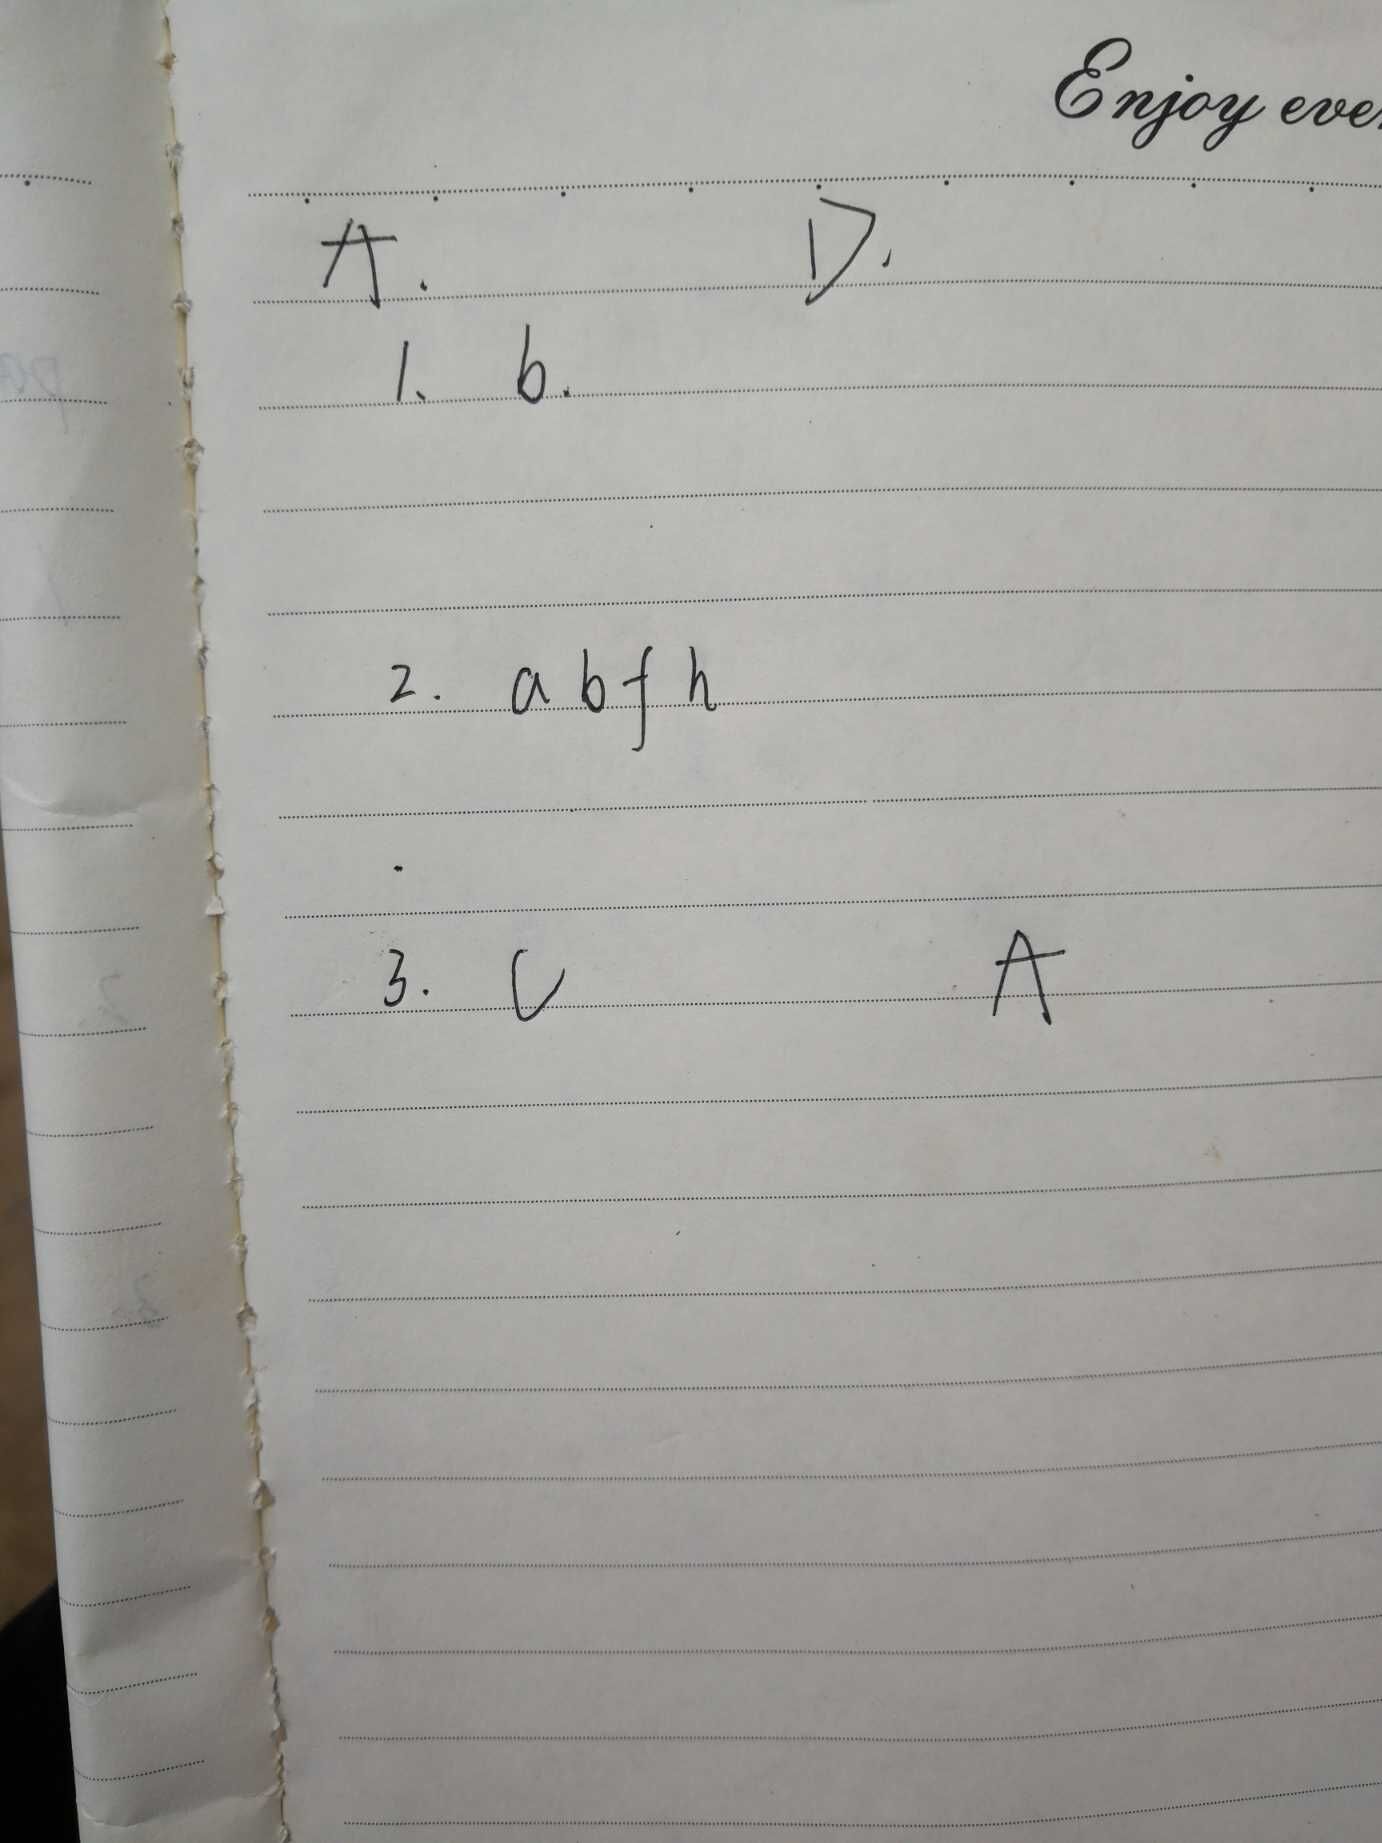 Enjoy eve
A. D.
1. b.
2. a b f h
3. C A